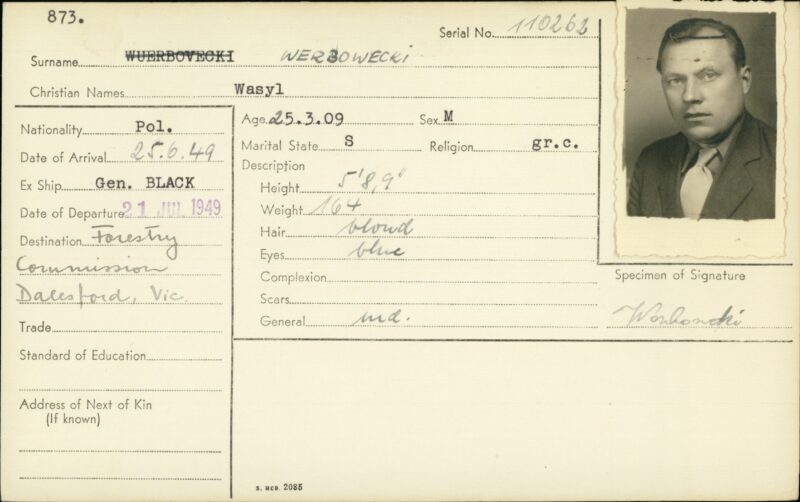 873.
Serial No. 110262
Surname WUERBOVECKI WERBOWECKI
Christian Names Wasyl
Nationality Pol.
Date of Arrival 25.6.49
Ex Ship Gen. BLACK
Date of Departure 21 JUL 1949
Destination Forestry
Commission
Dalesford, Vic.
Trade
Standard of Education
Address of Next of Kin
(If known)
Age 25.3.09 Sex M
Marital State S Religion gr.c.
Description
Height 5'8,9"
Weight 164
Hair blond
Eyes blue
Complexion
Scars
General md.
Specimen of Signature
S. MCD. 2085